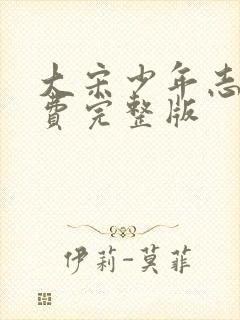 大宋少年志
费完整版
伊莉-莫菲